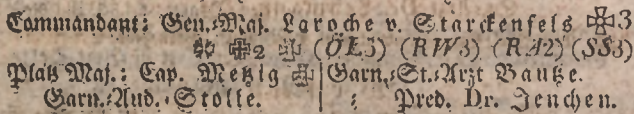 Commandant: Gen.-Maj. Laroche v. Starckenfels ✠3
✠ ✠2 ✠ (ÖL3) (RW3) (RA2) (SS3)
Platz Maj.: Cap. Metzig ✠ | Garn.-St.-Arzt Bautze.
Garn.-Aud. Stolle. | : Pred. Dr. Jenchen.